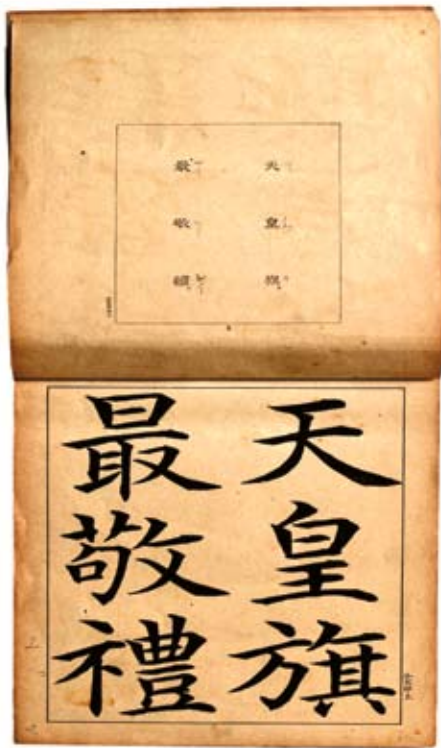 天皇旗
最敬禮
天皇旗
最敬禮